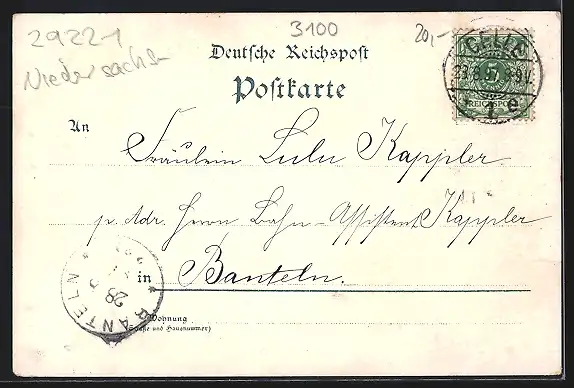 29221
3100
20,-
Niedersachsen
Deutsche Reichspost
Postkarte
CELLE
5
REICHSPOST
1 e
An
Fräulein Lulu Kappler
p. Adr. Herrn Bahn-Assistent Kappler
in
Banteln.
BANTELN
28
Wohnung
(Straße und Hausnummer)